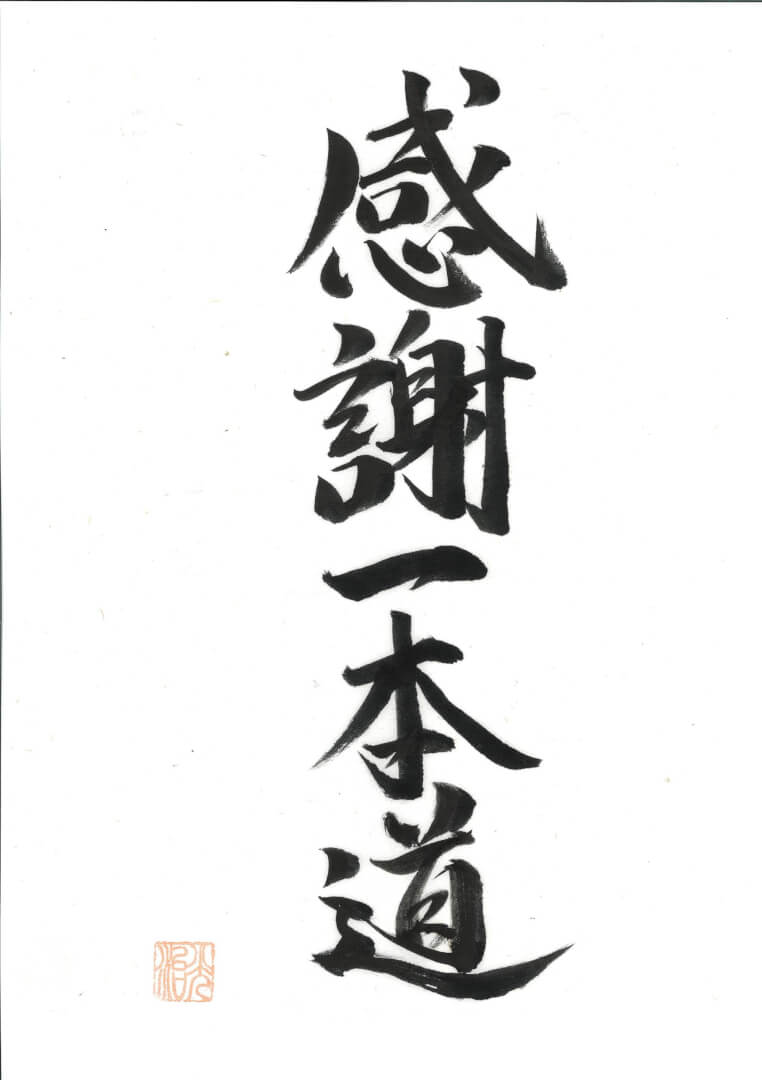 感謝一本道